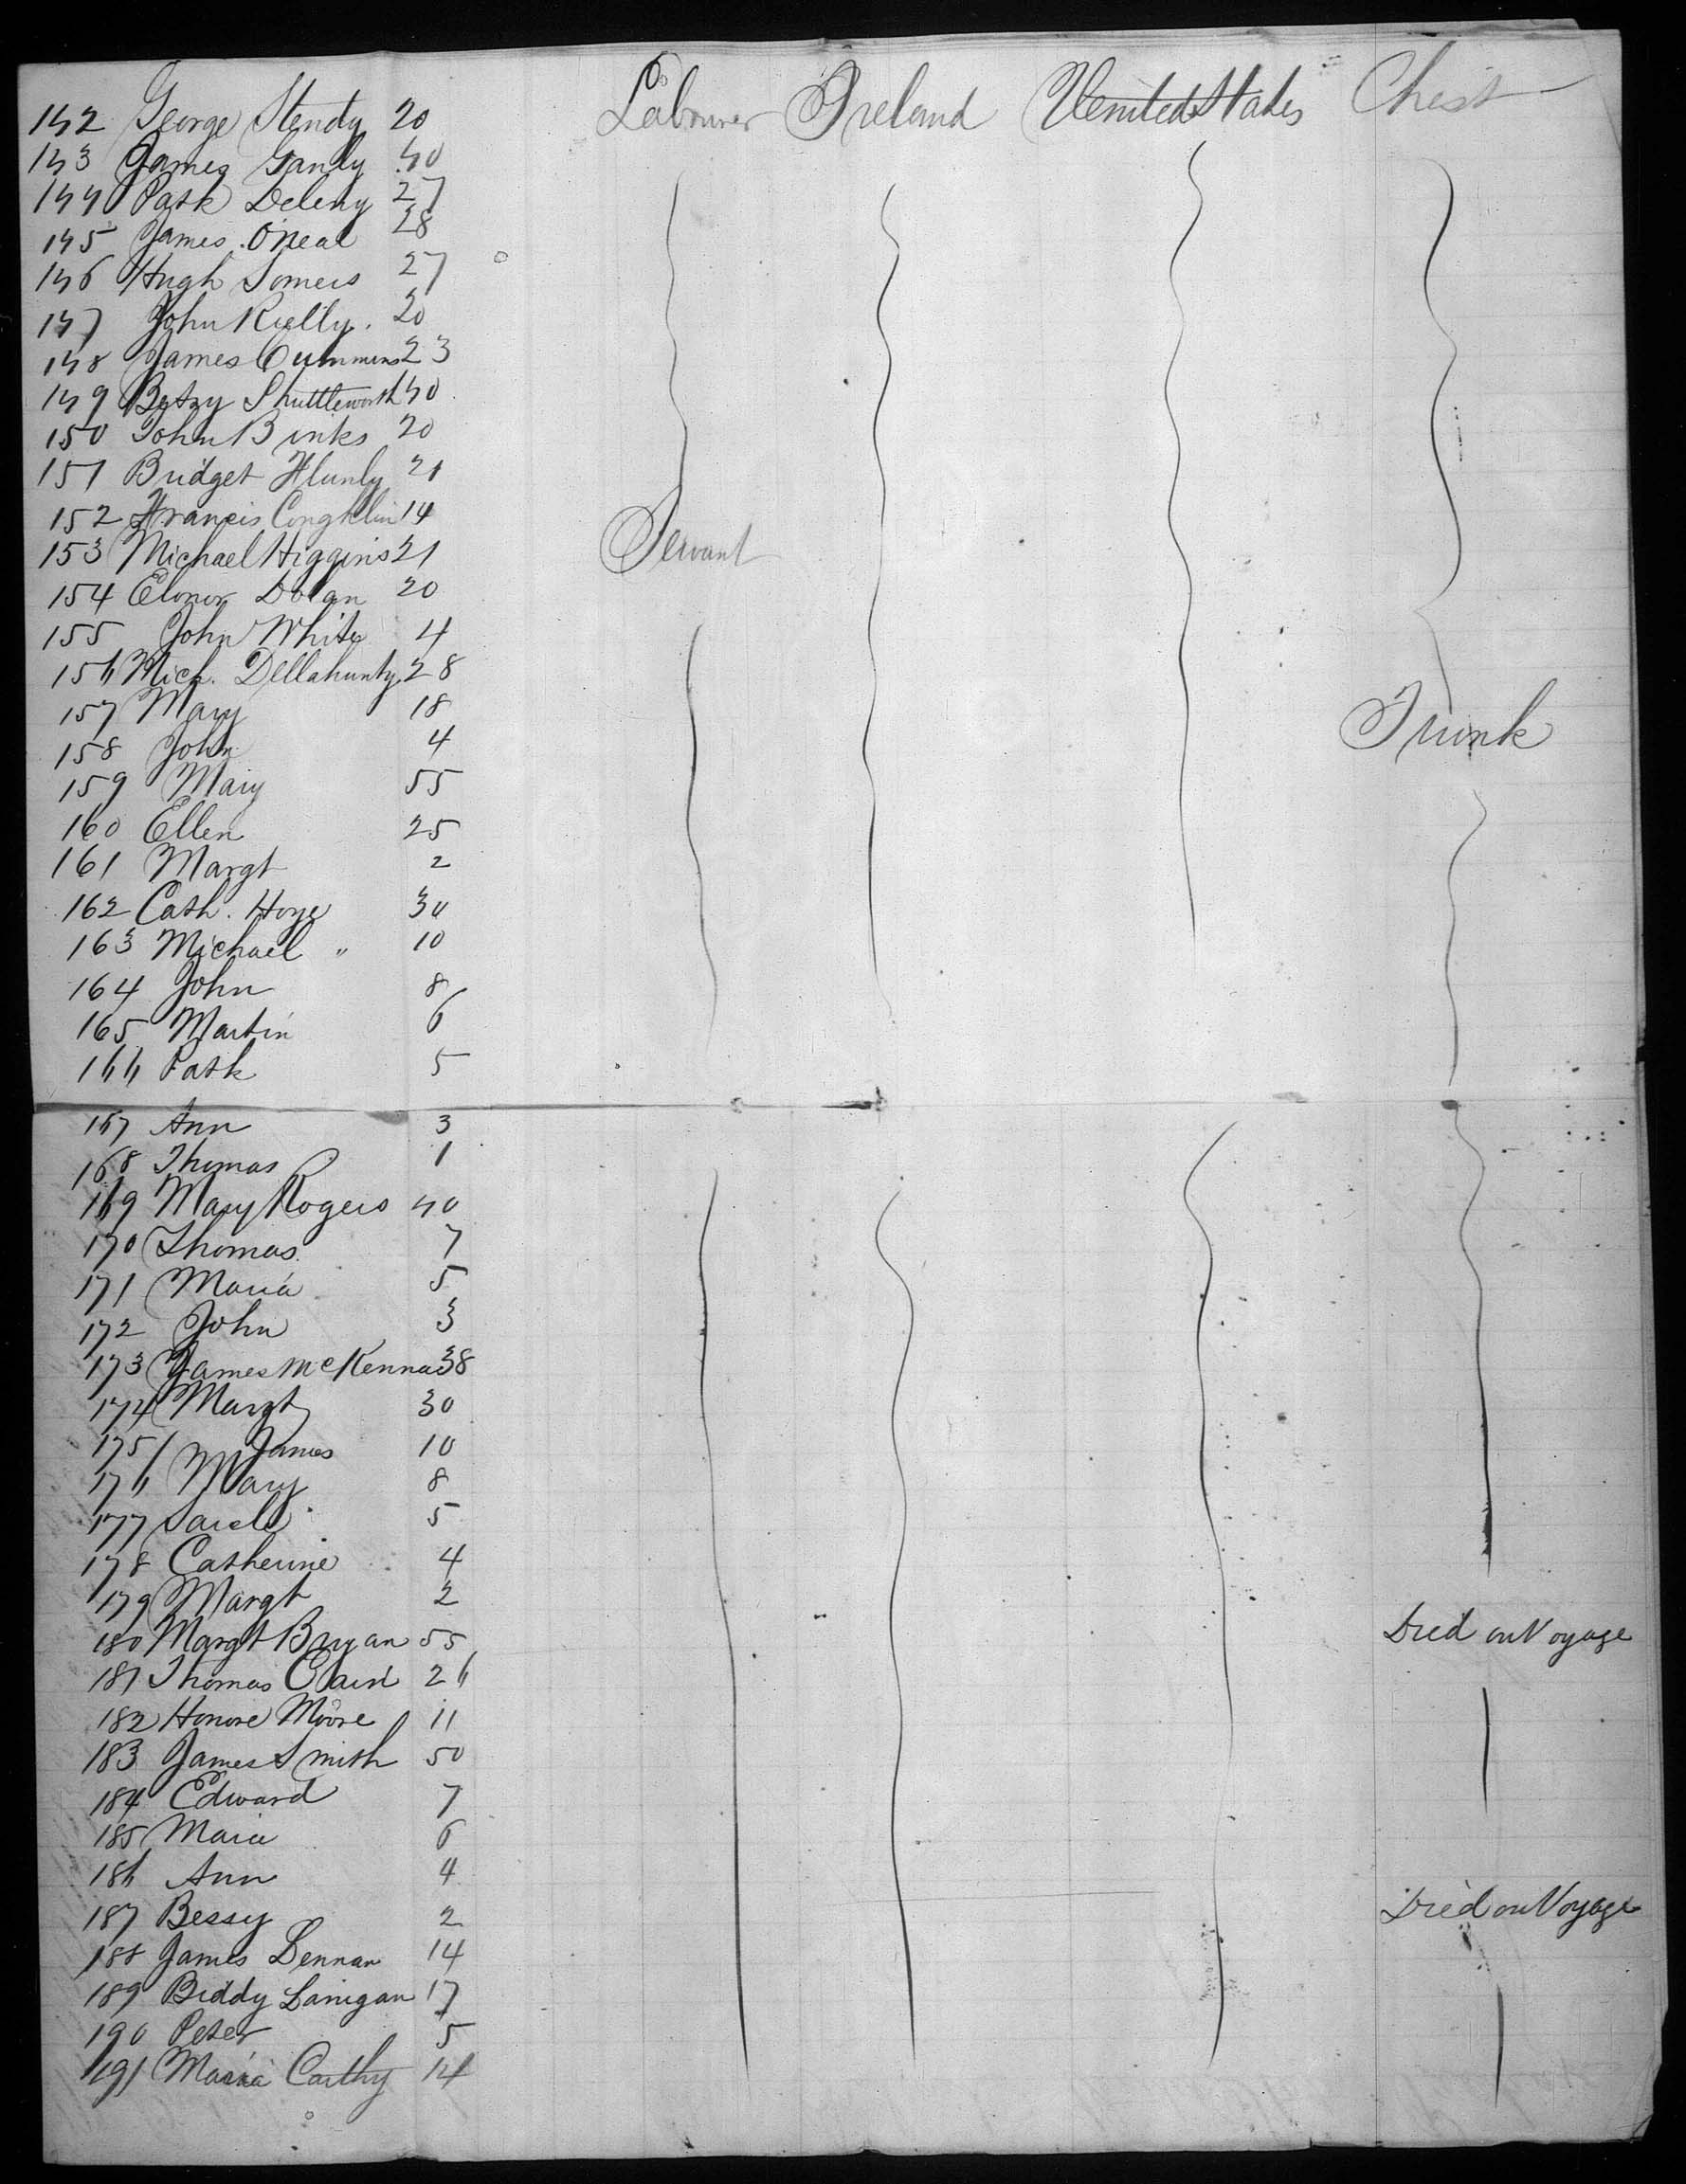 142 George Stendy 20 Labourer Ireland United States Chest
143 James Ganly 40
144 Patk Deleny 27
145 James O'Neal 28
146 Hugh Somers 27
147 John Rielly. 20
148 James Cummins 23
149 Betsy Shuttleworth 40
150 John Binks 20
151 Bridget Hunly 21
152 Francis Congklin 14
153 Michael Higgins 21 Servant
154 Elonor Dolan 20
155 John White 4
156 Mich. Dellahunty 28
157 Mary 18 Trunk
158 John 4
159 Mary 55
160 Ellen 25
161 Margt 2
162 Cath. Hoye 30
163 Michael " 10
164 John 8
165 Martin 6
166 Patk 5
167 Ann 3
168 Thomas 1
169 Mary Rogers 40
170 Thomas 7
171 Maria 5
172 John 3
173 James McKenna 38
174 Margt 30
175 James 10
176 Mary 8
177 Sarah 5
178 Catherine 4
179 Margt 2
180 Margt Bryan 55 Died on Voyage
181 Thomas 26
182 Honore Moore 11
183 James Smith 50
184 Edward 7
185 Maria 6
186 Ann 4
187 Bessy 2 Died on Voyage
188 James Lennan 14
189 Biddy Lanigan 17
190 Peter 5
191 Maria Carthy 14